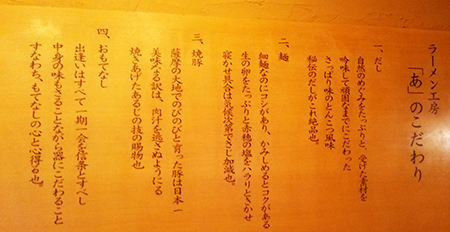 ラーメン工房
「あ」のこだわり
一、だし
自然のめぐみをたっぷりと、受けた素材を
吟味して頑固なまでにこだわった
さっぱり味のとんこつ風味
秘伝のだしがこれ絶品也。
二、麺
細麺なのにコシがあり、かみしめるとコクがある
生の卵をたっぷりと赤穂の塩をハラリときかせ
寝かせ具合は気候次第でさじ加減也。
三、焼豚
薩摩の大地でのびのびと育った豚は日本一
美味なる訳は、肉汁を逃さぬようにる
焼きあげたあるじの技の賜物也
四、おもてなし
出逢いはすべて一期一会を信条とすべし
中身の味もさることながら器にこだわること
すなわち、もてなしの心と心得る也。